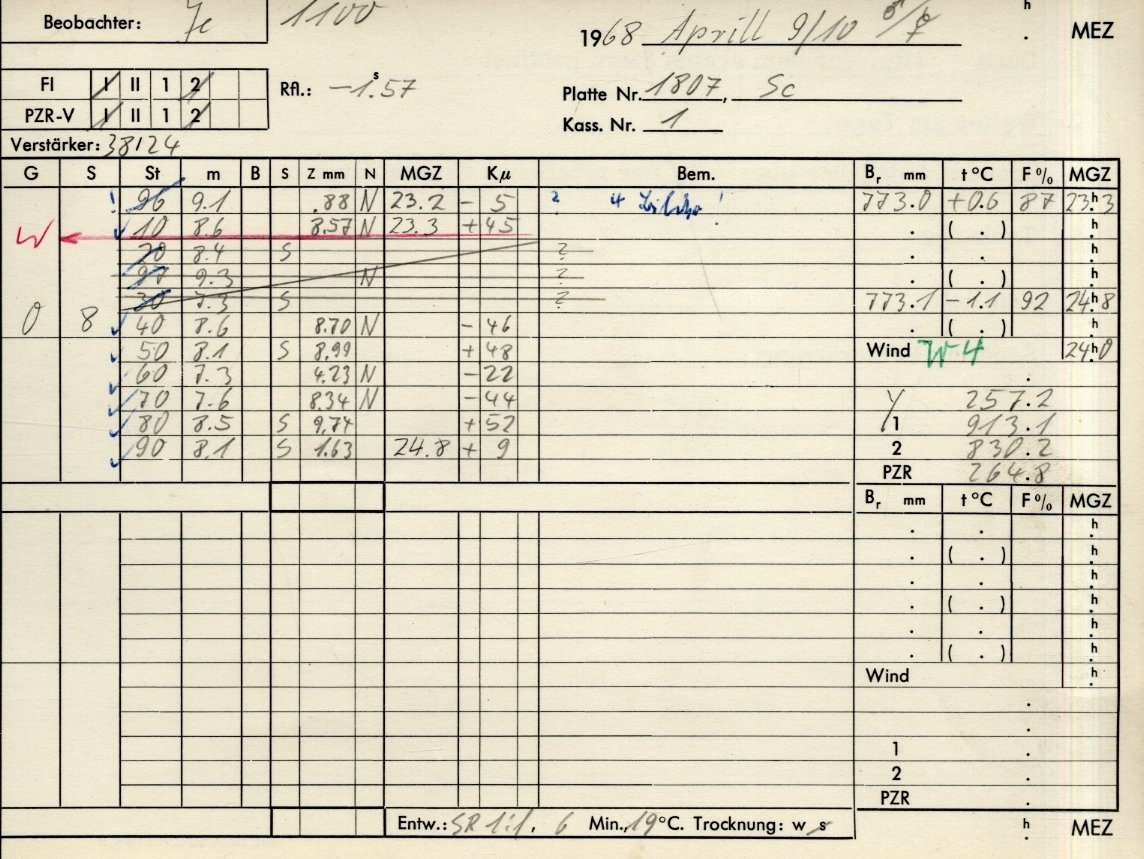 Beobachter: 1100
1968 Aprill 9/10 ♂/☿ h . MEZ
FI I II 1 2
PZR-V I II 1 2
Rfl.: -1.ˢ57
Platte Nr. 1807, Sc
Kass. Nr. 1
Verstärker: 38124
G S St m B S Z mm N MGZ Kμ Bem. Bᵣ mm t °C F % MGZ
96 9.1 .88 N 23.2 - 5 ? 4 773.0 +0.6 87 23.ʰ3
W 10 8.6 8.57 N 23.3 +45 . ( . ) ʰ.
20 8.4 S ? . . ʰ.
9.3 N ? . ( . ) ʰ.
30 7.3 S ? 773.1 -1.1 92 24.ʰ8
O 8 40 8.6 8.70 N - 46 . ( . ) ʰ.
50 8.1 S 8.99 + 48 Wind W 4 24.ʰ0
60 7.3 4.23 N - 22 .
70 7.6 8.34 N - 44 257.2
80 8.5 S 9.74 + 52 1 913.1
90 8.1 S 1.63 24.8 + 9 2 830.2
PZR 264.8
Bᵣ mm t °C F % MGZ
. . ʰ.
. ( . ) ʰ.
. . ʰ.
. ( . ) ʰ.
. . ʰ.
. ( . ) ʰ.
Wind ʰ.
.
.
1 .
2 .
PZR .
Entw.: SR 1:1. 6 Min., 19°C. Trocknung: w s h . MEZ